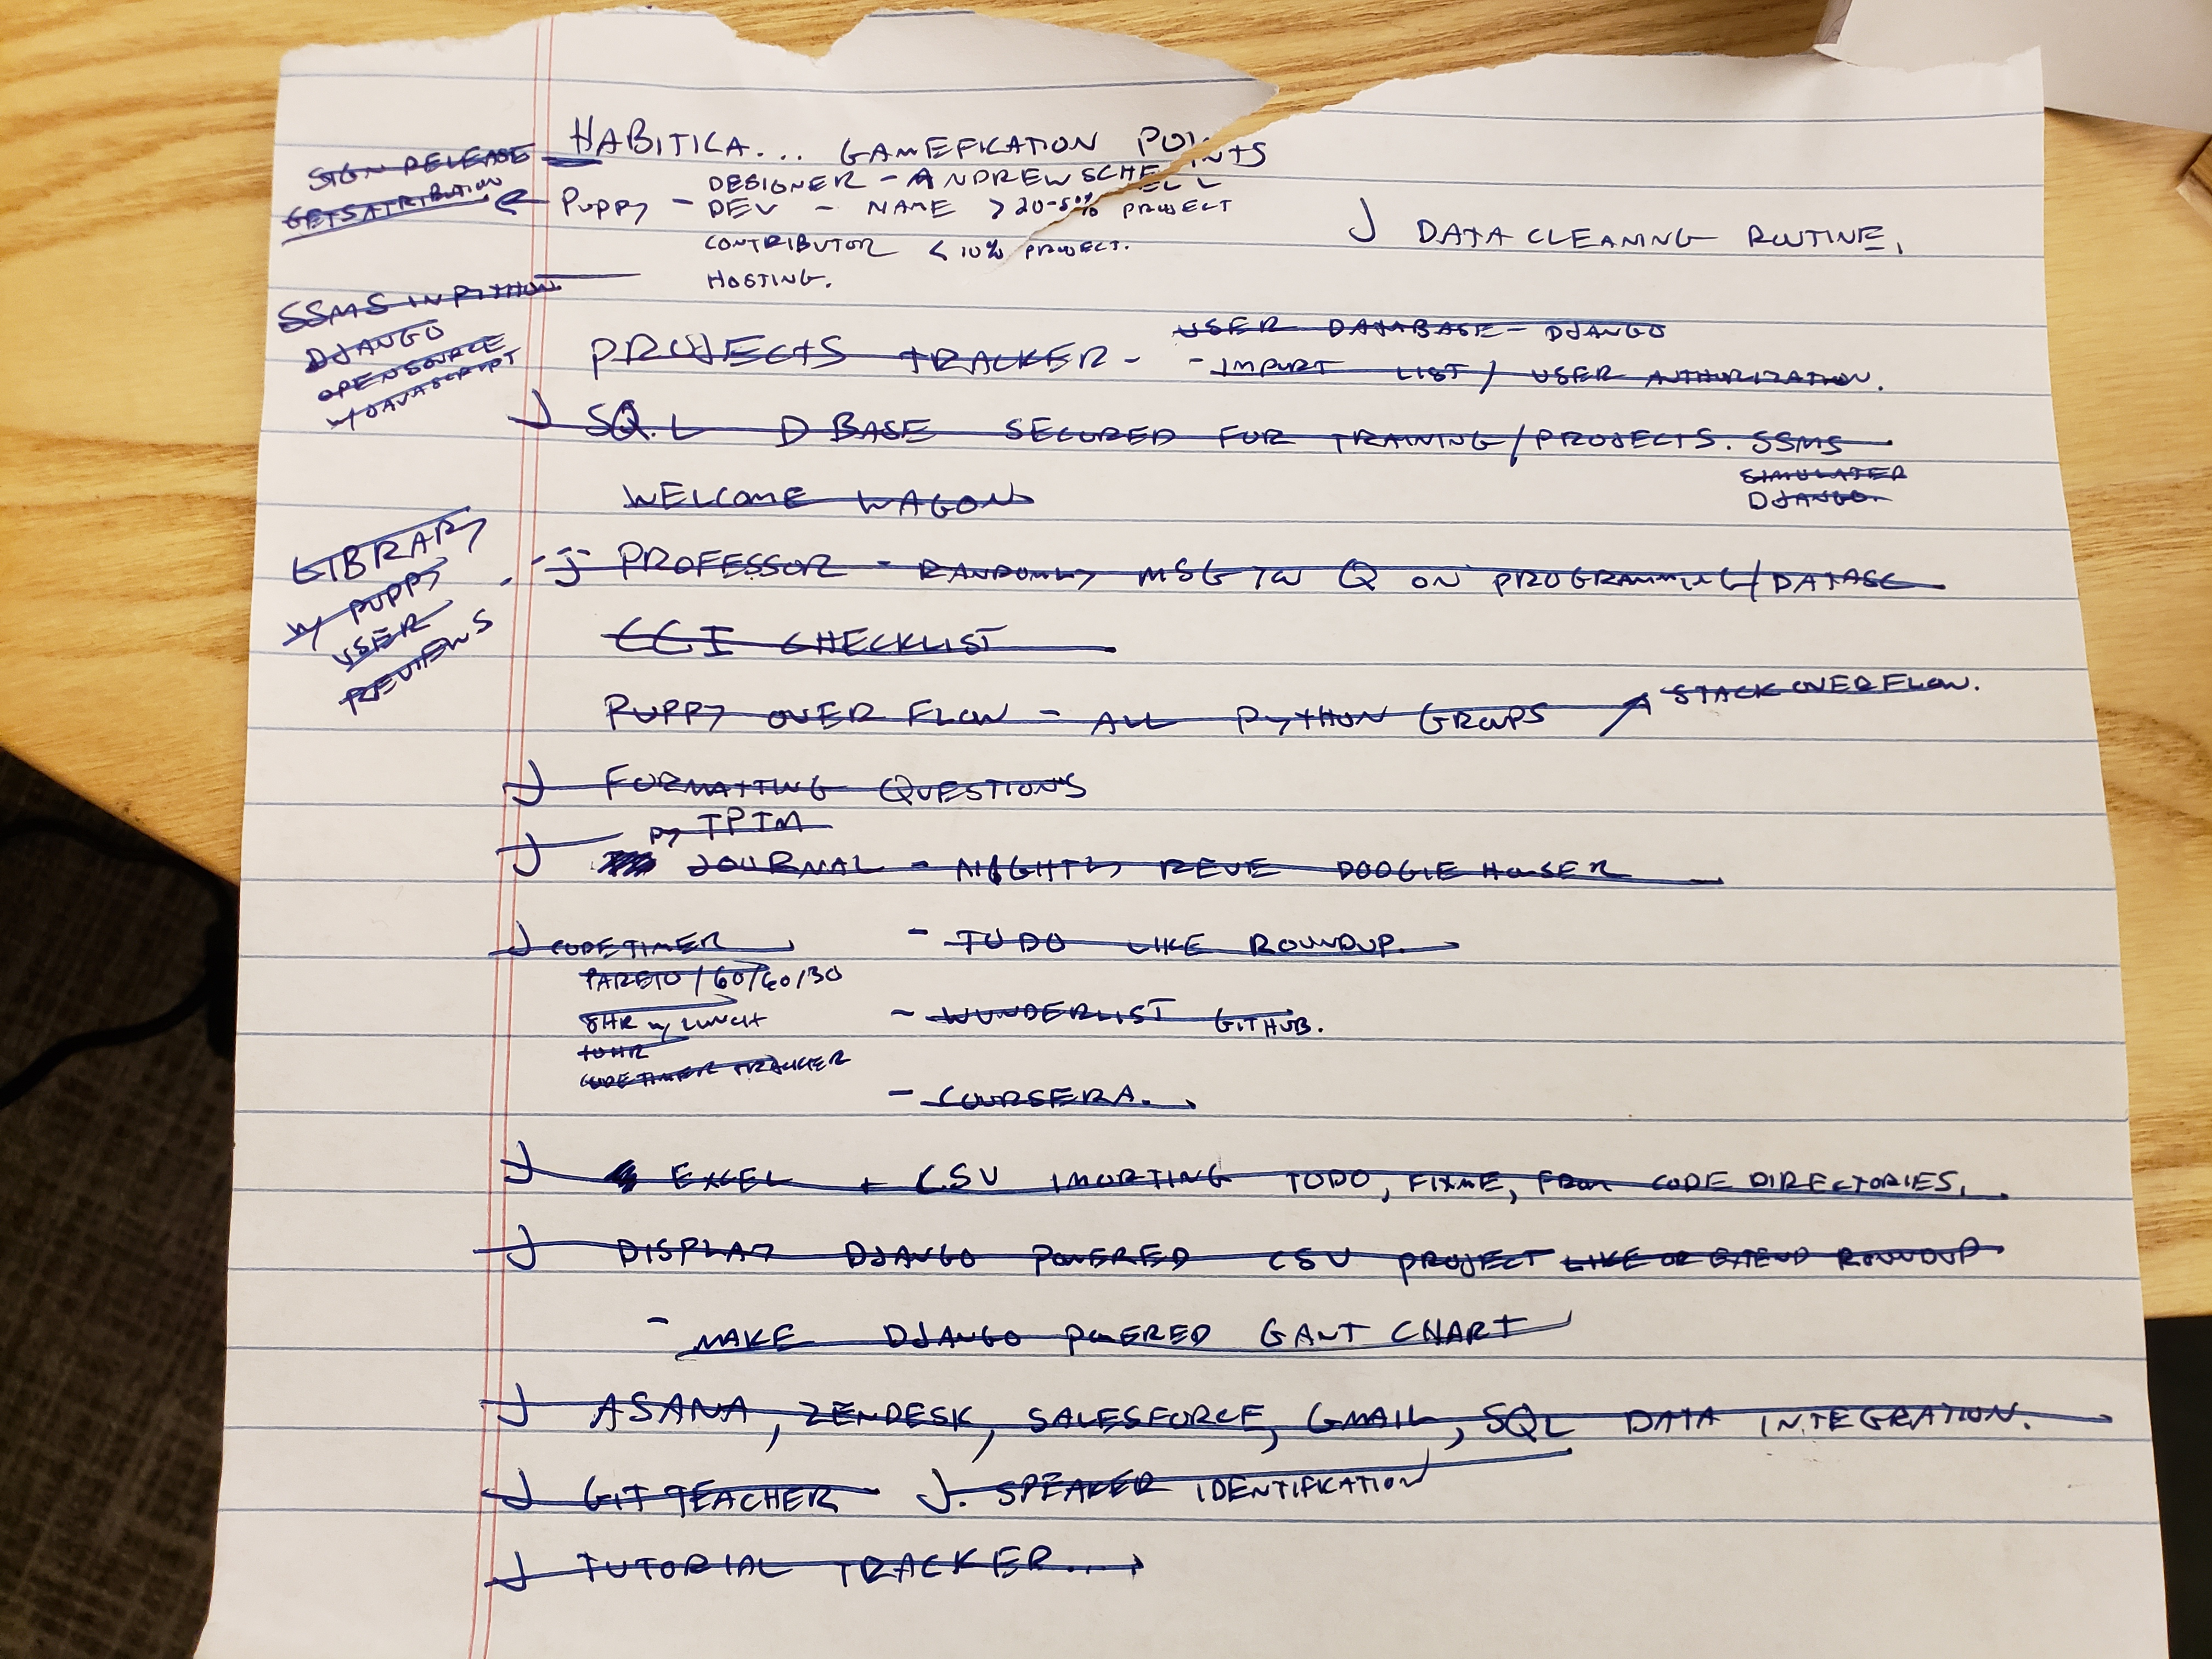 HABITICA... GAMEFICATION POINTS
SIGN RELEASE
GETS ATRIBUTION
PUPPY - DESIGNER - ANDREW SCHELL
DEV - NAME > 20-50% PROJECT
CONTRIBUTOR < 10% PROJECT.
HOSTING.
J DATA CLEANING ROUTINE.
SSMS IN PYTHON
DJANGO
OPEN SOURCE
W/ JAVASCRIPT
PROJECTS TRACKER - USER DATABASE - DJANGO
- IMPORT LIST / USER AUTHORIZATION.
J SQL D BASE SECURED FOR TRAINING/PROJECTS. SSMS
SIMULATER
DJANGO.
WELCOME WAGON
LIBRARY
W/ PUPPY
USER
REVIEWS
J PROFESSOR - RANDOMLY MSG W Q ON PROGRAMMING/DATASC
CCI CHECKLIST
PUPPY OVER FLOW - ALL PYTHON GROUPS STACK OVERFLOW.
J FORMATTING QUESTIONS
PY TPTM
J JOURNAL - NIGHTLY DOOGIE HOUSER
J CODETIMER - TODO LIKE ROUNDUP.
PARETO / 60/60/30
8HR W/ LUNCH - WUNDERLIST GITHUB.
10HR
CODETIMER TRACKER
- COURSERA.
J EXCEL + CSV IMORTING TODO, FIXME, FROM CODE DIRECTORIES.
J DISPLAY DJANGO POWERED CSV PROJECT LIKE OR EXTEND ROUNDUP
- MAKE DJANGO POWERED GANT CHART
J ASANA, ZENDESK, SALESFORCE, GMAIL, SQL DATA INTEGRATION.
J GIT TEACHER J. SPEAKER IDENTIFICATION
J TUTORIAL TRACKER...